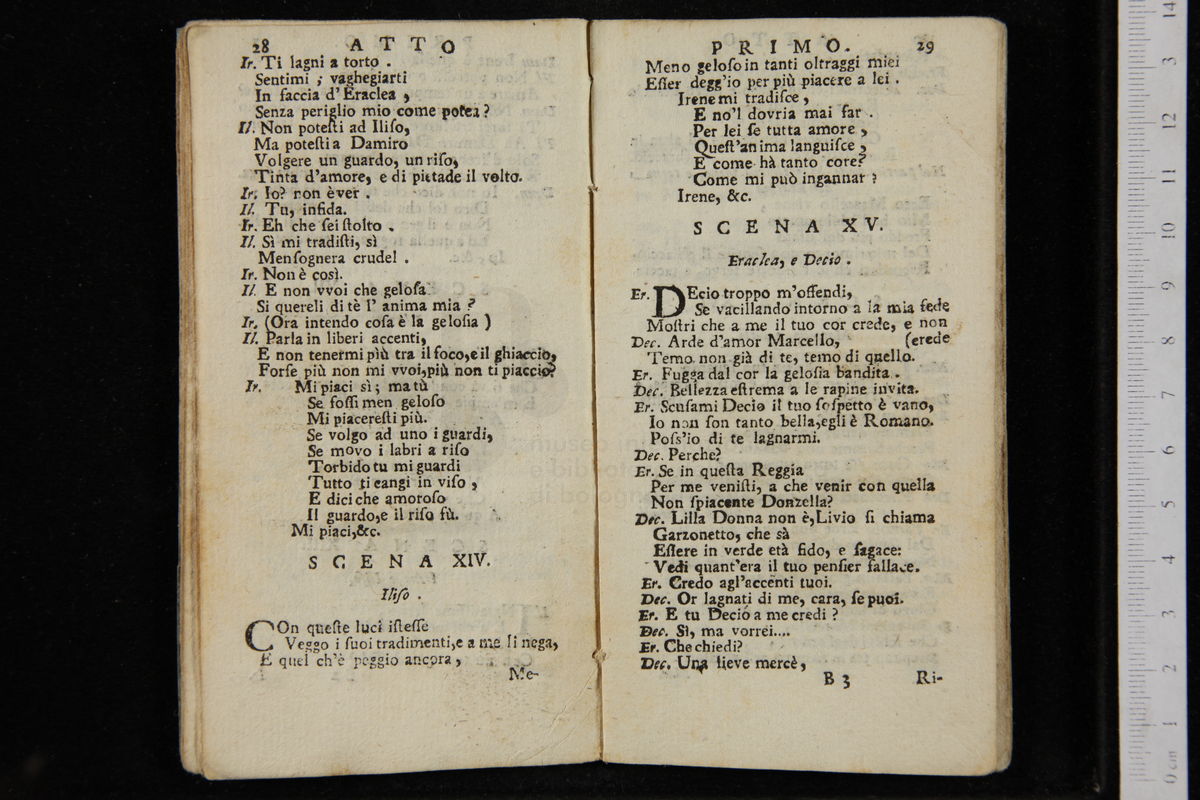 28 ATTO
Ir. Ti lagni a torto .
Sentimi ; vaghegiarti
In faccia d' Eraclea ,
Senza periglio mio come potea ?
Il. Non poteſti ad Iliſo,
Ma poteſti a Damiro
Volgere un guardo, un riſo,
Tinta d'amore, e di pietade il volto.
Ir. Io? non è ver .
Il. Tu, infida.
Ir. Eh che ſei ſtolto .
Il. Sì mi tradiſti, sì
Menſognera crudel .
Ir. Non è così.
Il. E non vvoi che geloſa
Si quereli di tè l' anima mia ?
Ir. (Ora intendo coſa è la geloſia )
Il. Parla in liberi accenti,
E non tenermi più tra il foco,e il ghiaccio,
Forſe più non mi vvoi,più non ti piaccio?
Ir. Mi piaci sì ; ma tù
Se foſſi men geloſo
Mi piacereſti più.
Se volgo ad uno i guardi,
Se movo i labri a riſo
Torbido tu mi guardi
Tutto ti cangi in viſo ,
E dici che amoroſo
Il guardo,e il riſo fù.
Mi piaci,&c.
SCENA XIV.
Iliſo .
COn queſte luci iſteſſe
Veggo i ſuoi tradimenti,e a me li nega,
E quel ch'è peggio ancora ,
Me-
PRIMO. 29
Meno geloſo in tanti oltraggi miei
Eſſer degg'io per più piacere a lei .
Irene mi tradiſce ,
E no'l dovria mai far .
Per lei ſe tutta amore ,
Queſt'anima languiſce ,
E come hà tanto core?
Come mi può ingannar ?
Irene, &c.
SCENA XV.
Eraclea, e Decio .
Er. DEcio troppo m'offendi,
Se vacillando intorno a la mia fede
Moſtri che a me il tuo cor crede, e non
Dec. Arde d'amor Marcello, (crede
Temo non già di te, temo di quello.
Er. Fugga dal cor la geloſia bandita .
Dec. Bellezza eſtrema a le rapine invita.
Er. Scuſami Decio il tuo ſoſpetto è vano,
Io non ſon tanto bella,egli è Romano.
Poſs'io di te lagnarmi.
Dec. Perche?
Er. Se in queſta Reggia
Per me veniſti, a che venir con quella
Non ſpiacente Donzella?
Dec. Lilla Donna non è,Livio ſi chiama
Garzonetto, che sà
Eſſere in verde età fido, e ſagace:
Vedi quant'era il tuo penſier fallace.
Er. Credo agl'accenti tuoi.
Dec. Or lagnati di me, cara, ſe puoi.
Er. E tu Decio a me credi ?
Dec. Sì, ma vorrei....
Er. Che chiedi?
Dec. Una lieve mercè,
B 3 Ri-